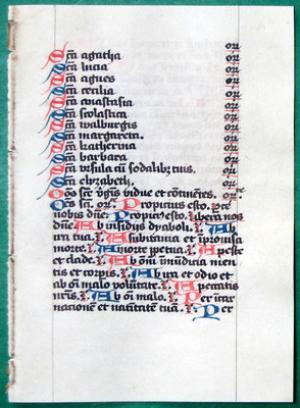 Scā agatha or
Scā lucia or
Scā agnes or
Scā cecilia or
Scā anastasia or
Scā scolastica or
Scā walburgis or
Scā margareta. or
Scā katherina or
Scā barbara or
Scā ursula cū sodalibz tuis. or
Scā elyzabeth. or
Oēs scē v̄gīs vidue et cōtinētes. orte
Oēs scī. or Propicius esto. Parce
nobis dūe. Propicius esto. libera nos
dūe. Ab insidijs dyaboli. Ab
ira tua. A subitanea et ipvisa
morte. A morte ppetua. A peste
et clade. Ab oī īmūdicia men
tis et corpis. Ab ira et odio et
ab oī mala volūtate. A peccatis
nr̄is. Ab oī malo. Per incar
nationē et natiuitatē tuā. Per